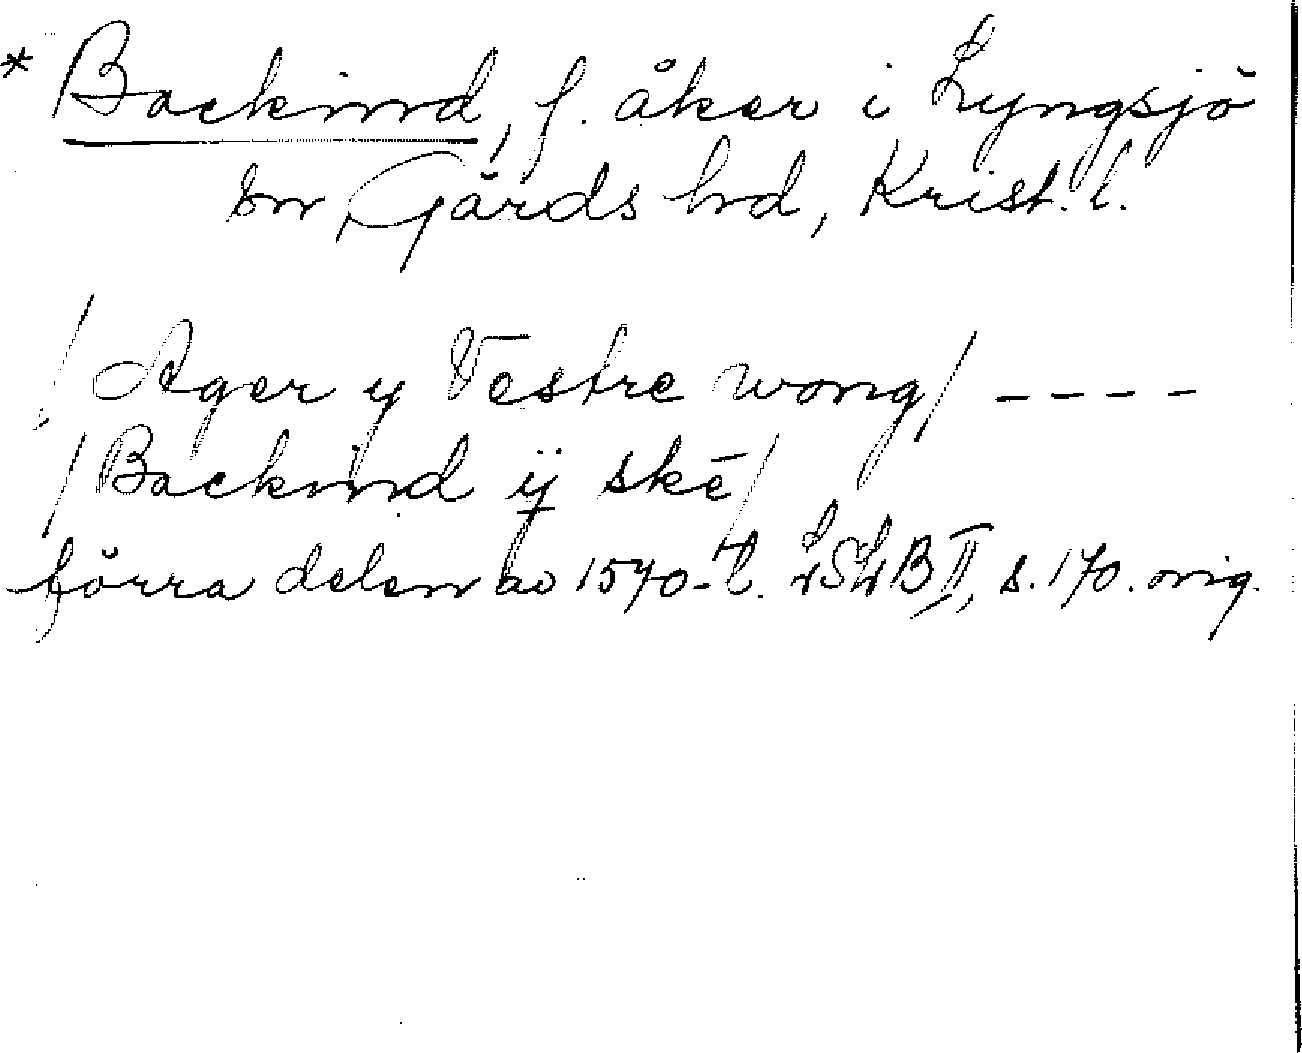 * Backinnd, f. åker i Lyngsjö
sn, Gärds hd, Krist. l.
/Ager y Vestre wong/ ----
/Backinnd ÿ skē/
förra delen av 1570-t. LSLB II, s. 170. orig.